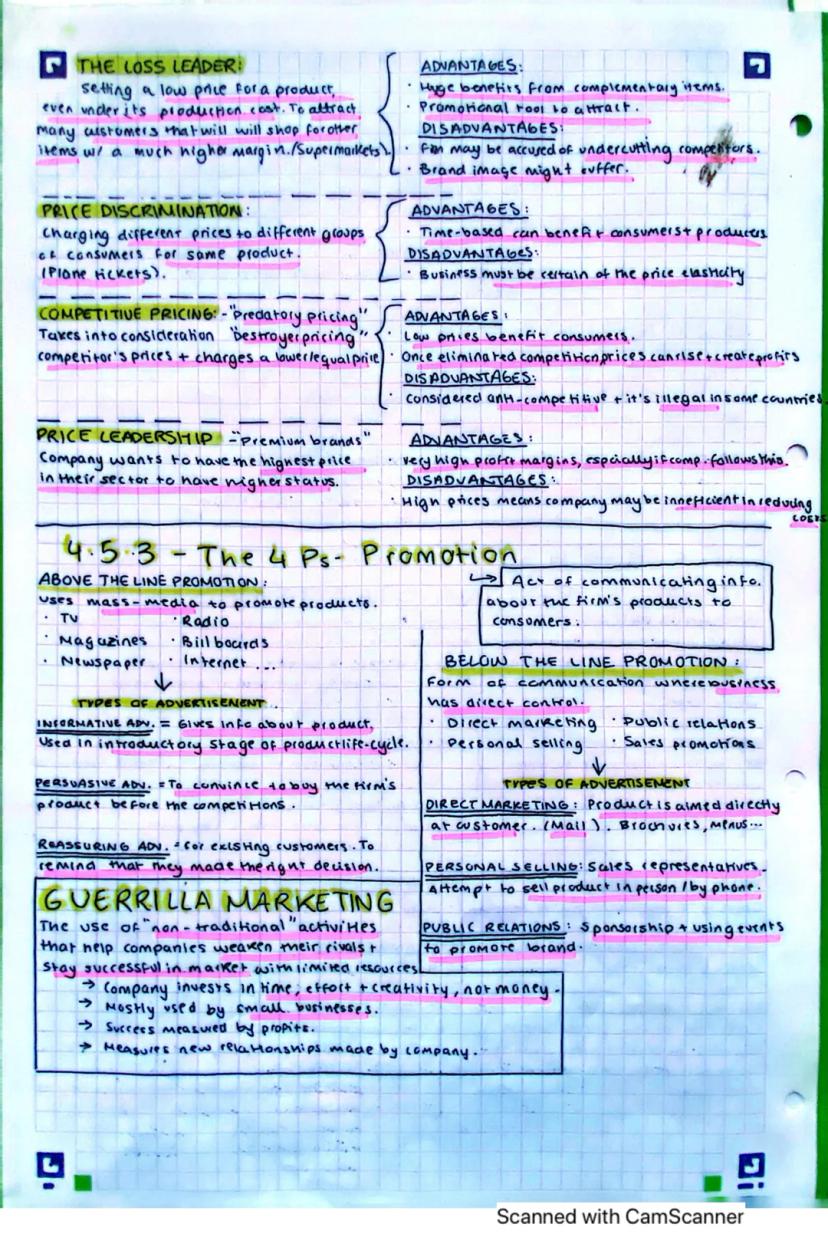 THE LOSS LEADER:
Setting a low price for a product,
even under its production cost. To attract
many customers that will will shop for other
items w/ a much higher margin. (Supermarkets).
ADVANTAGES:
· Huge benefits from complementary items.
· Promotional tool to attract.
DISADVANTAGES:
· Firm may be accused of undercutting competitors.
· Brand image might suffer.
PRICE DISCRIMINATION:
Charging different prices to different groups
of consumers for same product.
(Plane tickets).
ADVANTAGES:
· Time-based can benefit consumers + producers
DISADVANTAGES:
· Business must be certain of the price elasticity
COMPETITIVE PRICING: - "Predatory pricing"
Takes into consideration "Destroyer pricing"
competitor's prices + charges a lower/equal price
ADVANTAGES:
· Low prices benefit consumers.
· Once eliminated competition, prices can rise + create profits
DISADVANTAGES:
· Considered anti-competitive + it's illegal in some countries.
PRICE LEADERSHIP - "Premium brands"
Company wants to have the highest price
in their sector to have higher status.
ADVANTAGES:
· Very high profit margins, espcially if comp. follows this.
DISADVANTAGES:
· High prices means company may be inneficient in reducing
costs
4.5.3 - The 4 Ps - Promotion
Act of communicating info.
about the firm's products to
consumers.
ABOVE THE LINE PROMOTION:
Uses mass-media to promote products.
· TV · Radio
· Magazines · Billboards
· Newspaper · Internet ...
TYPES OF ADVERTISEMENT
INFORMATIVE ADV. = Gives info about product.
Used in introductory stage of product life-cycle.
PERSUASIVE ADV. = To convince to buy the firm's
product before the competitions.
REASSURING ADV. = for existing customers. To
remind that they made the right decision.
BELOW THE LINE PROMOTION:
Form of communication where business
has direct control.
· Direct marketing · Public relations
· Personal selling · Sales promotions
TYPES OF ADVERTISEMENT
DIRECT MARKETING: Product is aimed directly
at customer. (Mail). Brochures, Menus...
PERSONAL SELLING: Sales representatives.
Attempt to sell product in person / by phone.
PUBLIC RELATIONS: Sponsorship + using events
to promote brand.
GUERRILLA MARKETING
The use of "non-traditional" activities
that help companies weaken their rivals +
stay successful in market with limited resources
→ Company invests in time, effort + creativity, not money.
→ Mostly used by small businesses.
→ Success measured by profits.
→ Measures new relationships made by company.
Scanned with CamScanner